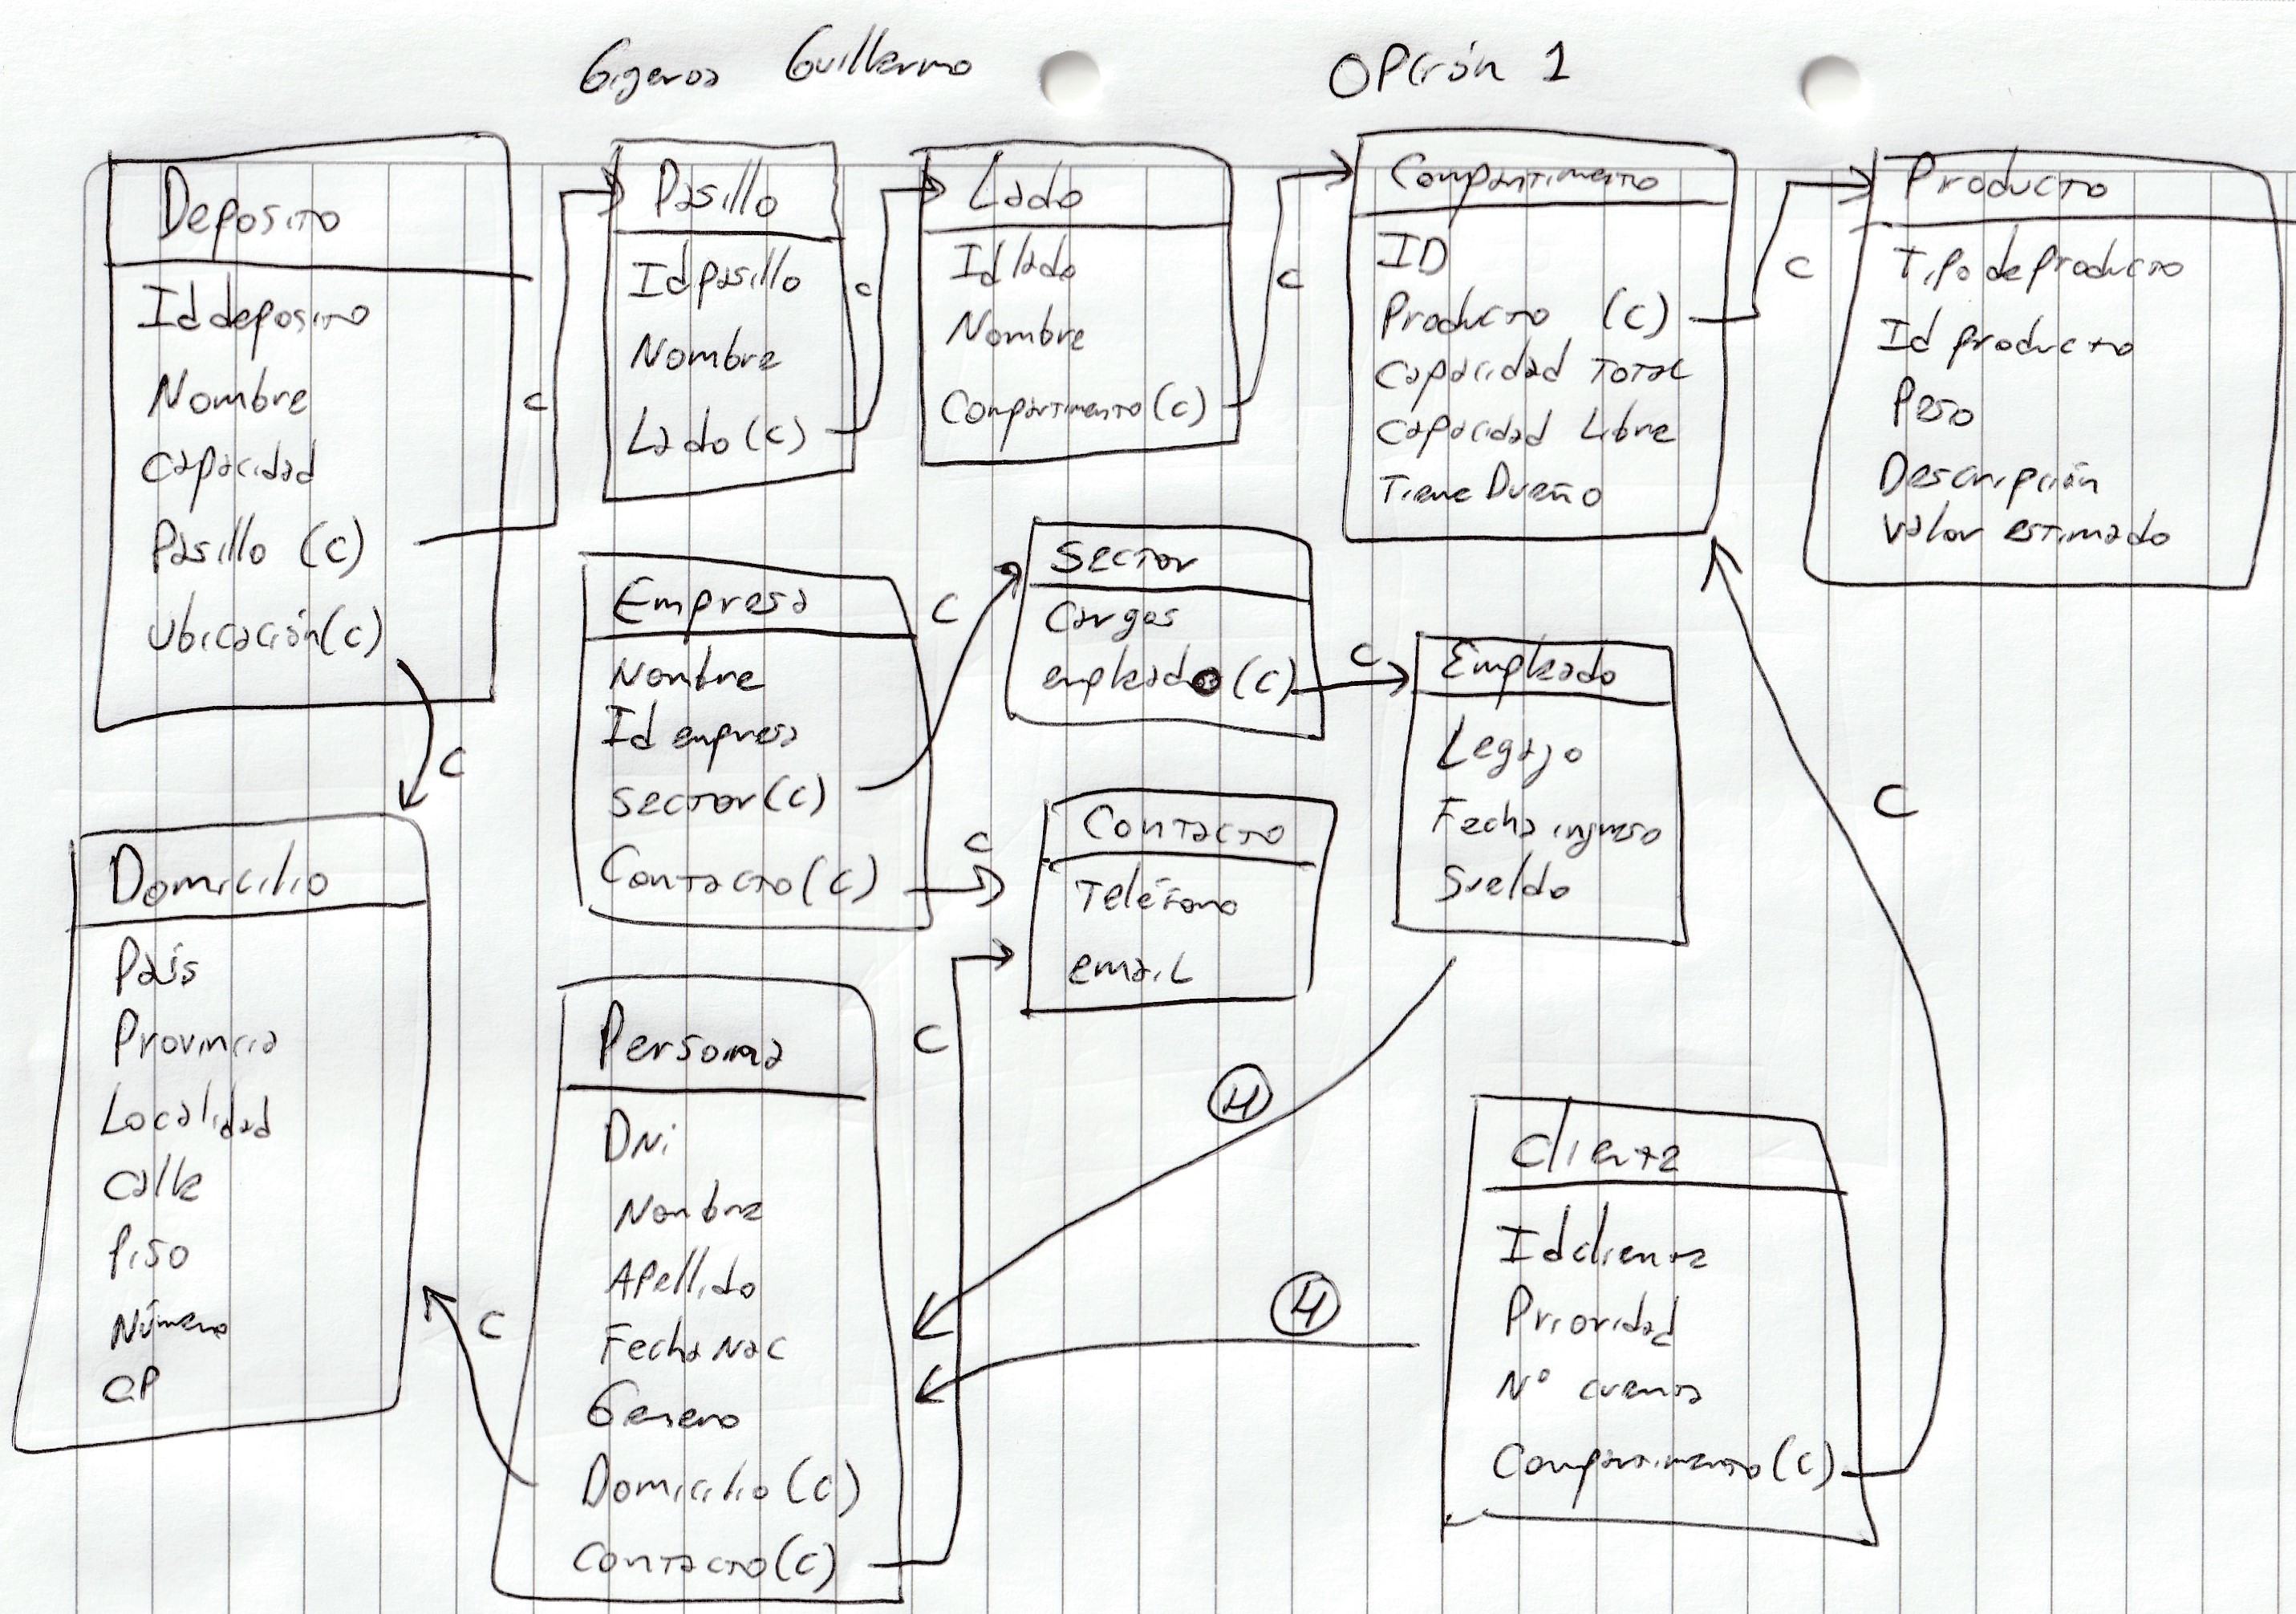 Gigeros Guillermo
OPción 1
Deposito
Id deposito
Nombre
Capacidad
Pasillo (C)
Ubicación (C)
C
C
Pasillo
Id pasillo
Nombre
Lado (C)
C
Lado
Id lado
Nombre
Compartimento (C)
C
Compartimento
ID
Producto (C)
Capacidad Total
Capacidad Libre
Tiene Dueño
C
Producto
Tipo de producto
Id producto
Peso
Descripción
Valor estimado
Empresa
Nombre
Id empresa
Sector (C)
Contacto (C)
C
C
Sector
Cargos
empleado (C)
C
Empleado
Legajo
Fecha ingreso
Sueldo
Contacto
Teléfono
email
Domicilio
País
Provincia
Localidad
Calle
Piso
Número
CP
C
Persona
DNi
Nombre
Apellido
Fecha Nac
Genero
Domicilio (C)
Contacto (C)
C
H
H
Cliente
Id cliente
Prioridad
N° cuenta
Compartimento (C)
C